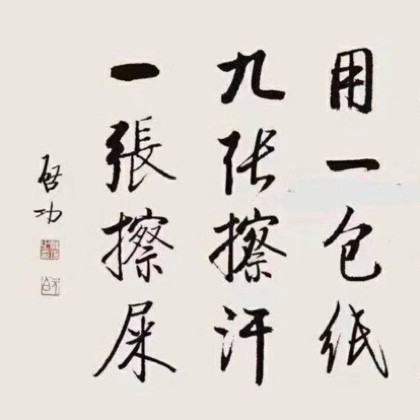 用一包纸
九张擦汗
一張擦屎
启功